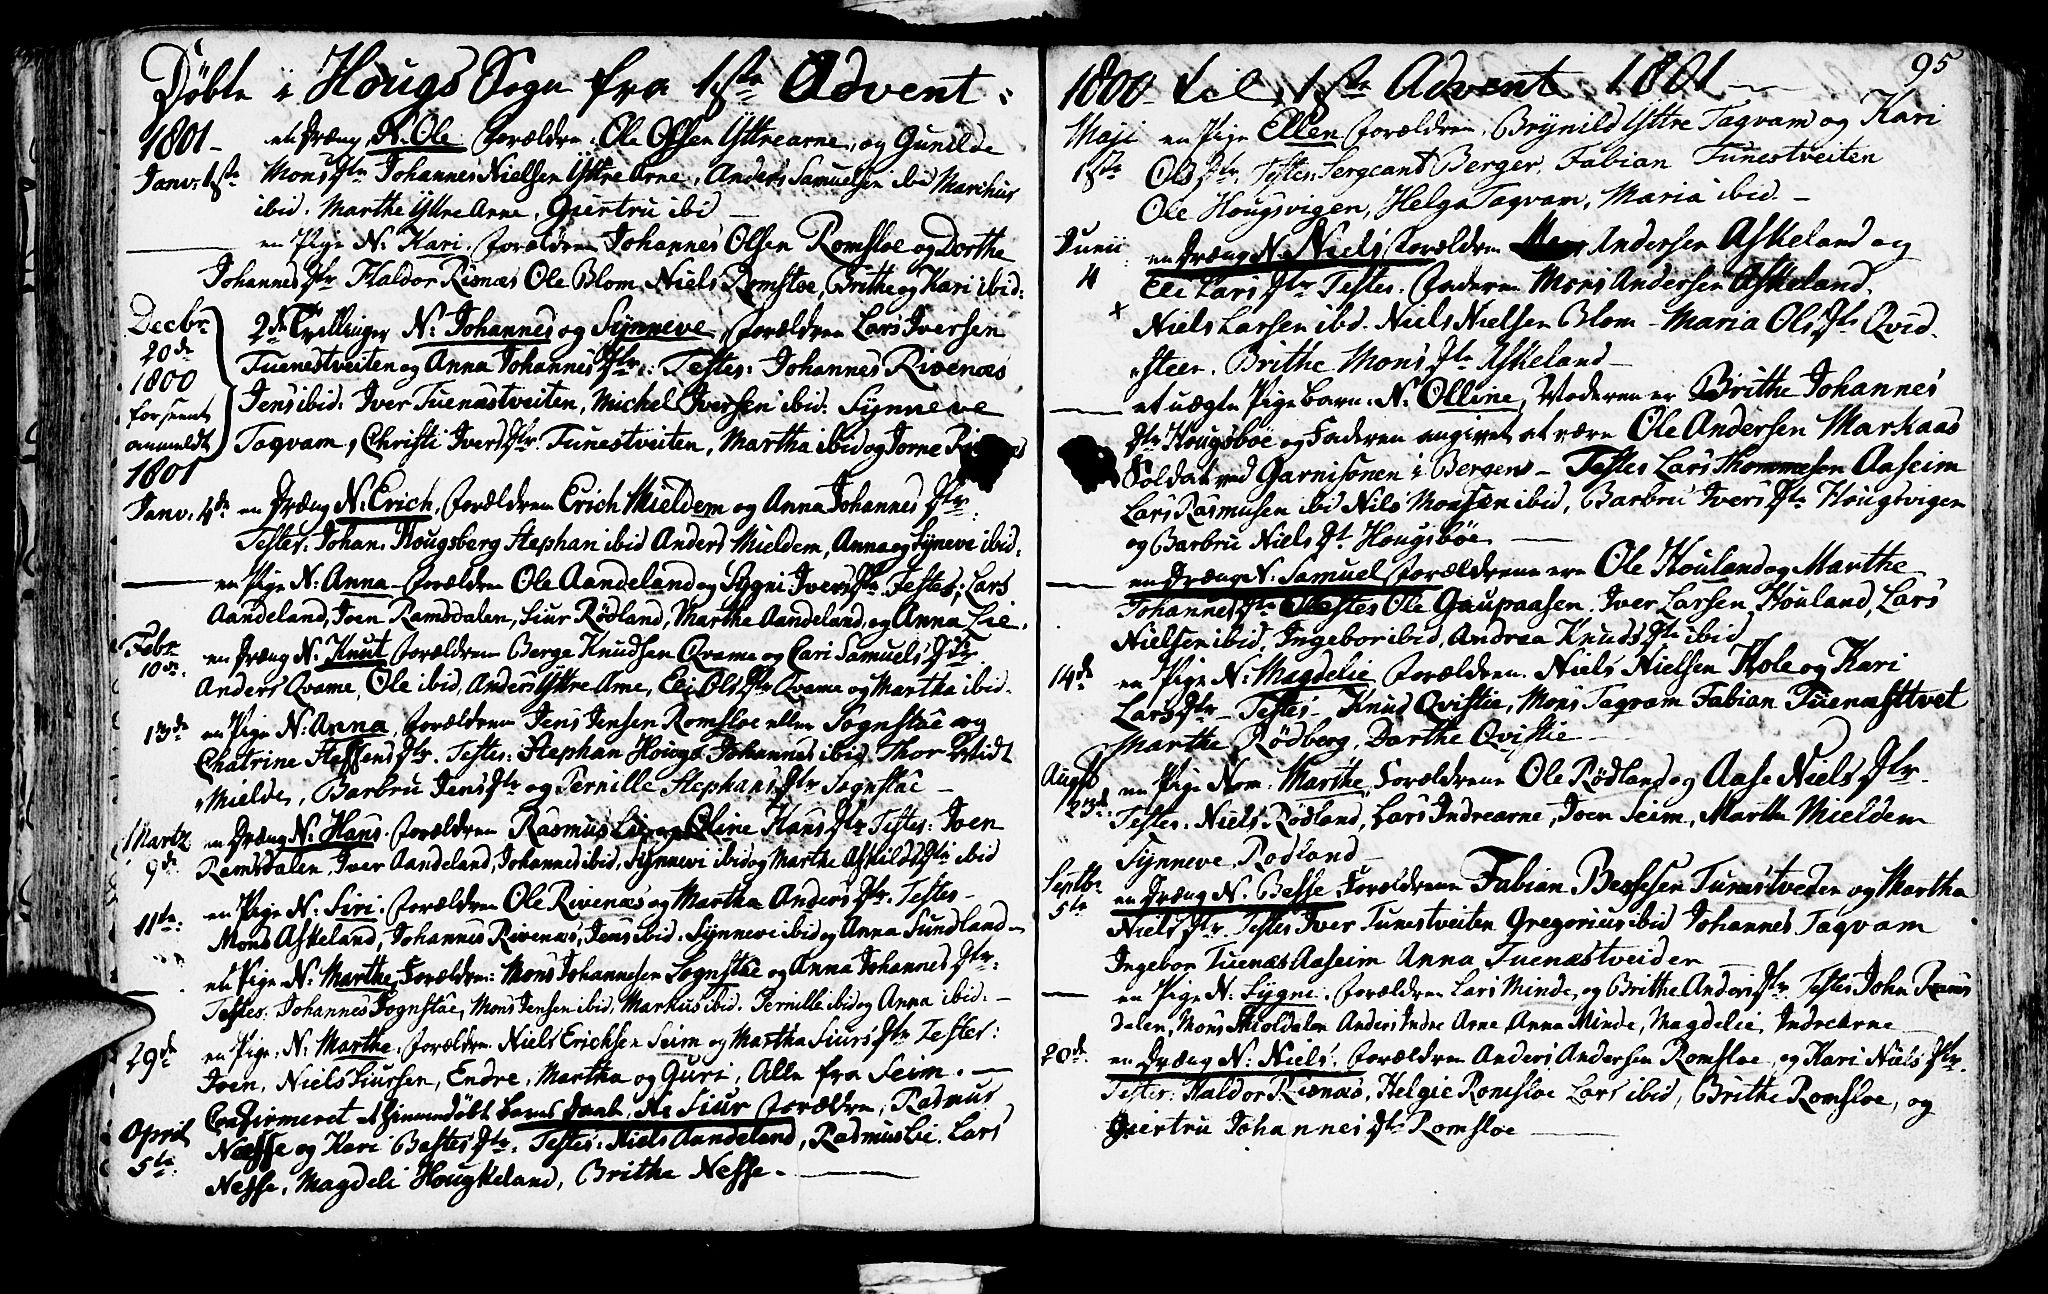 Døbte i Hougs Sogn fra 1ste Advent
1801 en Dræng N. Ole Forældre: Ole Olsen Yttrearne, og Gunilde
Janv: 1ste Mons Dtr Johannes Nielsen Yttre Arne, Anders Samuelsen ibid Marchus
ibid. Marthe Yttre Arne, Giertru ibi
en Pige N: Kari, Forældre Johannes Olsen Romsloe og Dorthe
Johannes Dtr Haldor Risnæs Ole Blom Niels Romsloe, Brithe og Kari ibid:
Decbr 20de 1800 forsent anmeldt 2de Tvillinger N: Johannes og Synneve, Forældre Lars Iversen
Tuenestveiten og Anna Johannes Dtr: Testes: Johannes Rivenæs
Jens ibid: Iver Tuenæstveiten, Michel Iversen ibid: Synneve
Taqvam, Christi Ivers Dtr Tunestveiten, Martha ibid og Jorne
1801
Janv. 4de en Dræng N: Erich, Forældre Erich Mieldem og Anna Johannes Dtr
Testes: Johan: Hougsberg Stephan ibid Anders Mieldem, Anna og Syneve ibid.
en Pige N: Anna Forældre Ole Aandeland og Sygni Ivers Dtr Testes; Lars
Aandeland, Joen Ramsdalen, Siur Rødland, Marthe Aandeland, og Anna Lie.
Febr 10de en Dræng N. Knut Forældre Berge Knudsen Qvame og Cari Samuels Dtr
Anders Qvame, Ole ibid, Anders Yttre Arne, Eli Ols Dtr Qvame og Martha ibid.
13de en Pige N: Anna, Forældre Jens Jensen Romsloe eller Sognstûe og
Chatrine Steffens Dtr. Testes: Stephan Hougs Johannes ibid, Thor Widt
Mielde, Barbru Jens Dtr og Pernille Stephans Dtr Sognstûe
Martz 9de en Dræng N: Hans Forældre Rasmus Lie og Oline Hans Dtr Testes: Joen
Ramsdalen, Iver Aandeland, Johannes ibid, Synnevi ibid og Marthe Askilds Dtr ibid
11te: en Pige N: Siri, Forældre Ole Rivenæs og Martha Anders Dtr. Testes
Mons Askeland, Johannes Rivenæs, Jens ibid. Synneve ibid og Anna Sundland
en Pige N: Marthe, Forældre: Mons Johannesen Sognstûe og Anna Johannes Dtr.
Testes: Johannes Sognstûe, Mons Jensen ibid, Markus ibid. Pernille ibid og Anna ibid:
29de en Pige: N: Marthe, Forældre Niels Erichsen Seim og Martha Siurs Dtr Testes:
Joen, Niels Siursen, Endre, Martha og Guri, Alle fra Seim.
April 5te Confirmeret et hiemmedøbt barns Daab, N: Siur Forældre, Rasmus
Næsse og Kari Bastes Dtr. Testes: Niels Aandeland, Rasmus Lie. Lars
Nesse, Magdeli Hougkeland, Brithe Nesse.
95
1800 til 1ste Advent 1801
Maji 1ste en Pige Ellen Forældre, Brynild Yttre Taqvam og Kari
Ols Dtr, Testes. Sergeant Berger, Fabian Tunestveiten
Ole Hougsvigen, Helga Taqvam, Maria ibid.
Junii 4 en Dræng N. Niels Forældre Andersen Askeland og
Eli Lars Dtr Testes. Faderen Mons Andersen Askeland.
x Niels Larsen ibid. Niels Nielsen Blom Maria Ols Dtr Qvid
steen. Brithe Mons Dtr Askeland
et uægte Pigebarn. N: Olline, Moderen er Brithe Johannes
Dtr Hougsboe og Faderen angivet at være Ole Andersen Markaad
Soldat ved Garnisonen i Bergen Testes Lars Thommesen Aaseim
Lars Rasmusen ibi Nils Monsen ibid, Barbru Ivers Dtr Hougsvigen
og Barbru Niels Dt Hougsbøe
en Dræng N: Samuel Forældrene ere Ole Houland og Marthe
Johannes Dtr Testes Ole Gaupaasen. Iver Larsen Houland, Lars
Nielsen ibid, Ingebor ibid, Andrea Knuds Dtr ibid
14de en Pige N: Magdelie Forældre. Niels Nielsen Hole og Kari
Lars Dtr Testes Knud Qvistie, Mons Taqvam Fabian Tuenæsttvet
Marthe Rødberg, Darthe Qvistie
Augst 23de en Pige Nom: Marthe, Forældrene Ole Rødland og Aase Niels Dtr.
Testes. Niels Rødland, Lars Indrearne, Joen Seim, Marthe Mieldem
Synneve Rødland
Septbr 5te en Dræng N. Besse Forældrene Fabian Bessesen Tunestveden og Martha
Niels Dtr Testes Iver Tunestveiten Gregorius ibid Johannes Taqvam
Ingebor Tuenæs Aaseim Anna Tuenæstveider
en Pige N. Sygni. Forældre Lars Minde, og Brithe Anders Dtr Testes John Rams
dalen, Mons Skioldalen Anders Indre Arne Anna Minde, Magdelie, Indrearne
20de en Dræng N: Niels. Forældre Anders Andersen Romsloe, og Kari Niels Dtr.
Testes: Haldor Risnæs, Helgie Romsloe Lars ibid, Brithe Romsloe, og
Giertru Johannes Dtr Romsloe